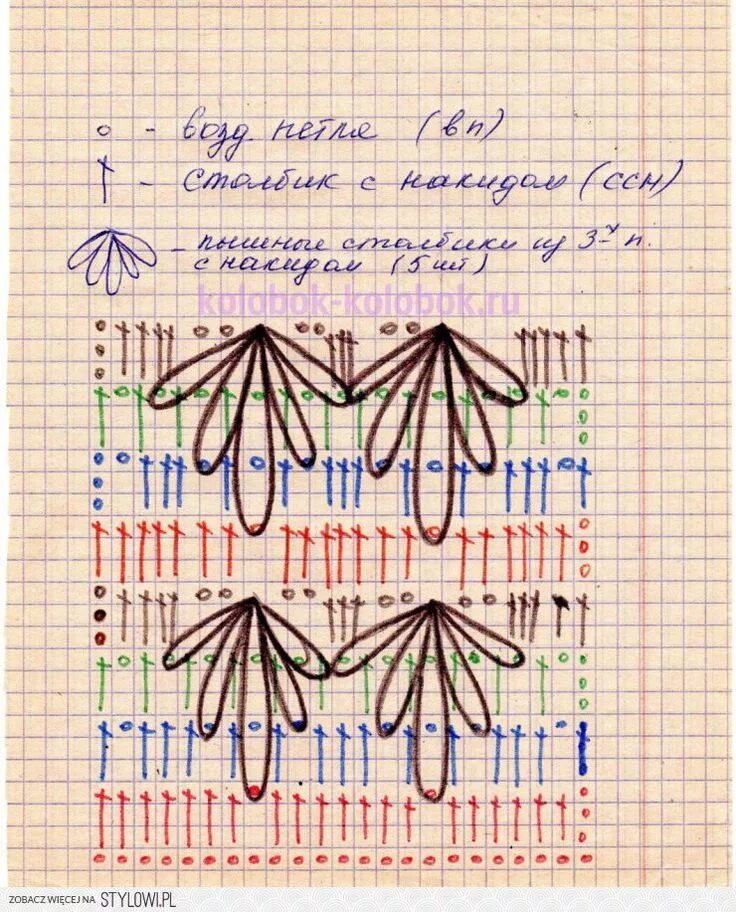 о - возд. петля (вп)
- столбик с накидом (ссн)
- пышные столбики из 3-х п.
с накидом (5 шт)
kolobok-kolobok.ru
ZOBACZ WIĘCEJ NA STYLOWI.PL